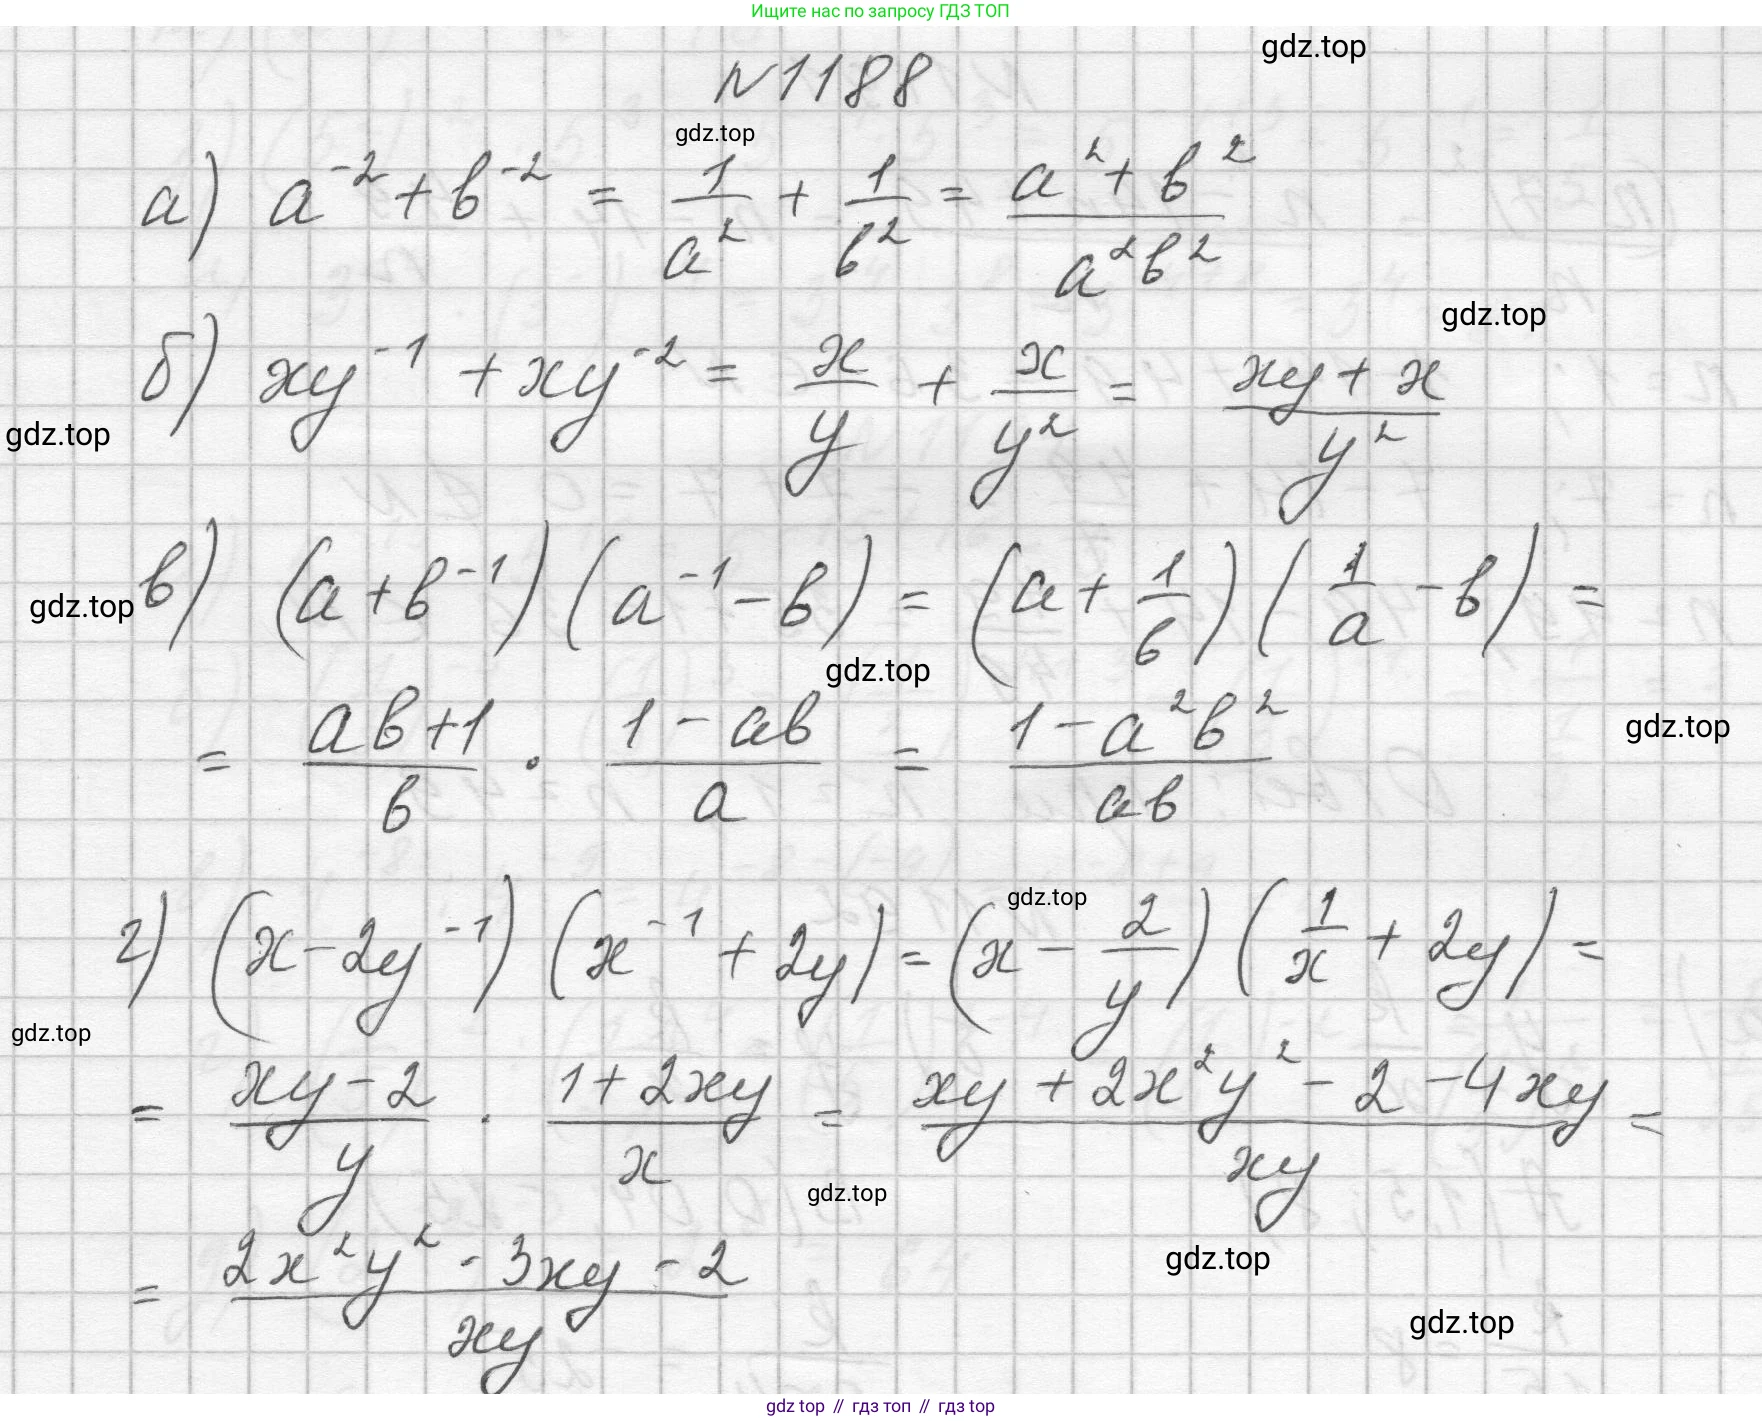 Ищите нас по запросу ГДЗ ТОП
gdz.top
N1188
gdz.top
а) a⁻² + b⁻² = 1/a² + 1/b² = (a² + b²)/(a²b²)
gdz.top
б) xy⁻¹ + xy⁻² = x/y + x/y² = (xy + x)/y²
gdz.top
в) (a + b⁻¹)(a⁻¹ - b) = (a + 1/b)(1/a - b) =
gdz.top
gdz.top
= (ab+1)/b · (1 - ab)/a = (1 - a²b²)/(ab)
gdz.top
gdz.top
г) (x - 2y⁻¹)(x⁻¹ + 2y) = (x - 2/y)(1/x + 2y) =
gdz.top
= (xy - 2)/y · (1 + 2xy)/x = (xy + 2x²y² - 2 - 4xy)/(xy) =
gdz.top
= (2x²y² - 3xy - 2)/(xy)
gdz.top
gdz.top
gdz top // гдз топ // гдз top